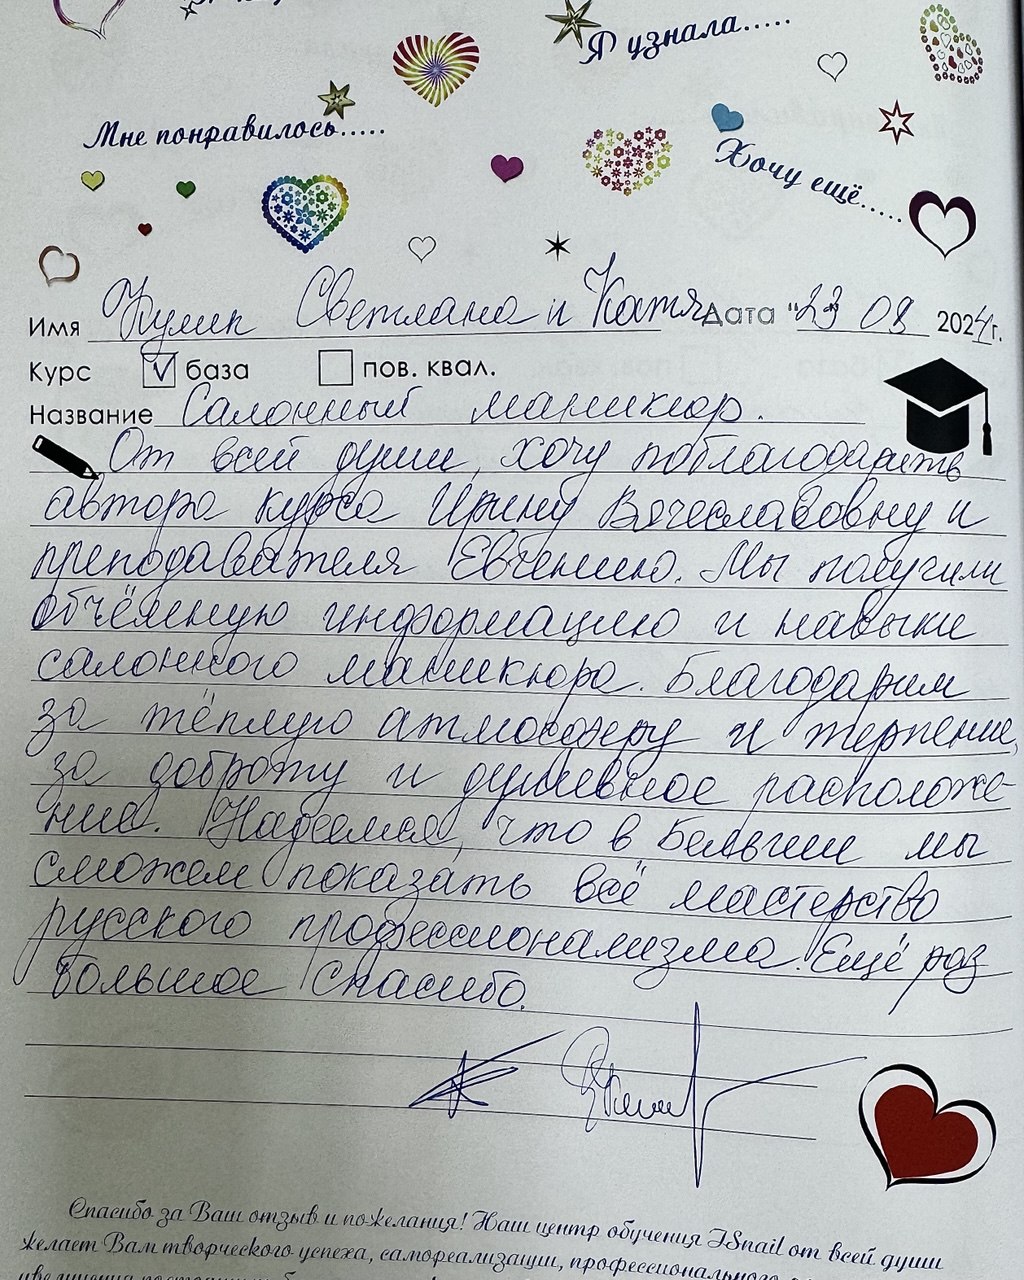 Я узнала.....
Мне понравилось.....
Хочу ещё.....
Имя Кулик Светлана и Катя Дата "23" 08 2024г.
Курс V база пов. квал.
Название Салонный маникюр.
От всей души, хочу поблагодарить
автора курса Ирину Вячеславовну и
преподавателя Евгению. Мы получили
объёмную информацию и навыки
салонного маникюра. Благодарим
за тёплую атмосферу и терпение,
за доброту и душевное расположе-
ние. Надеемся, что в Бельгии мы
сможем показать всё мастерство
русского профессионализма. Ещё раз
большое спасибо.
Спасибо за Ваш отзыв и пожелания! Наш центр обучения ISnail от всей души
желает Вам творческого успеха, самореализации, профессионального